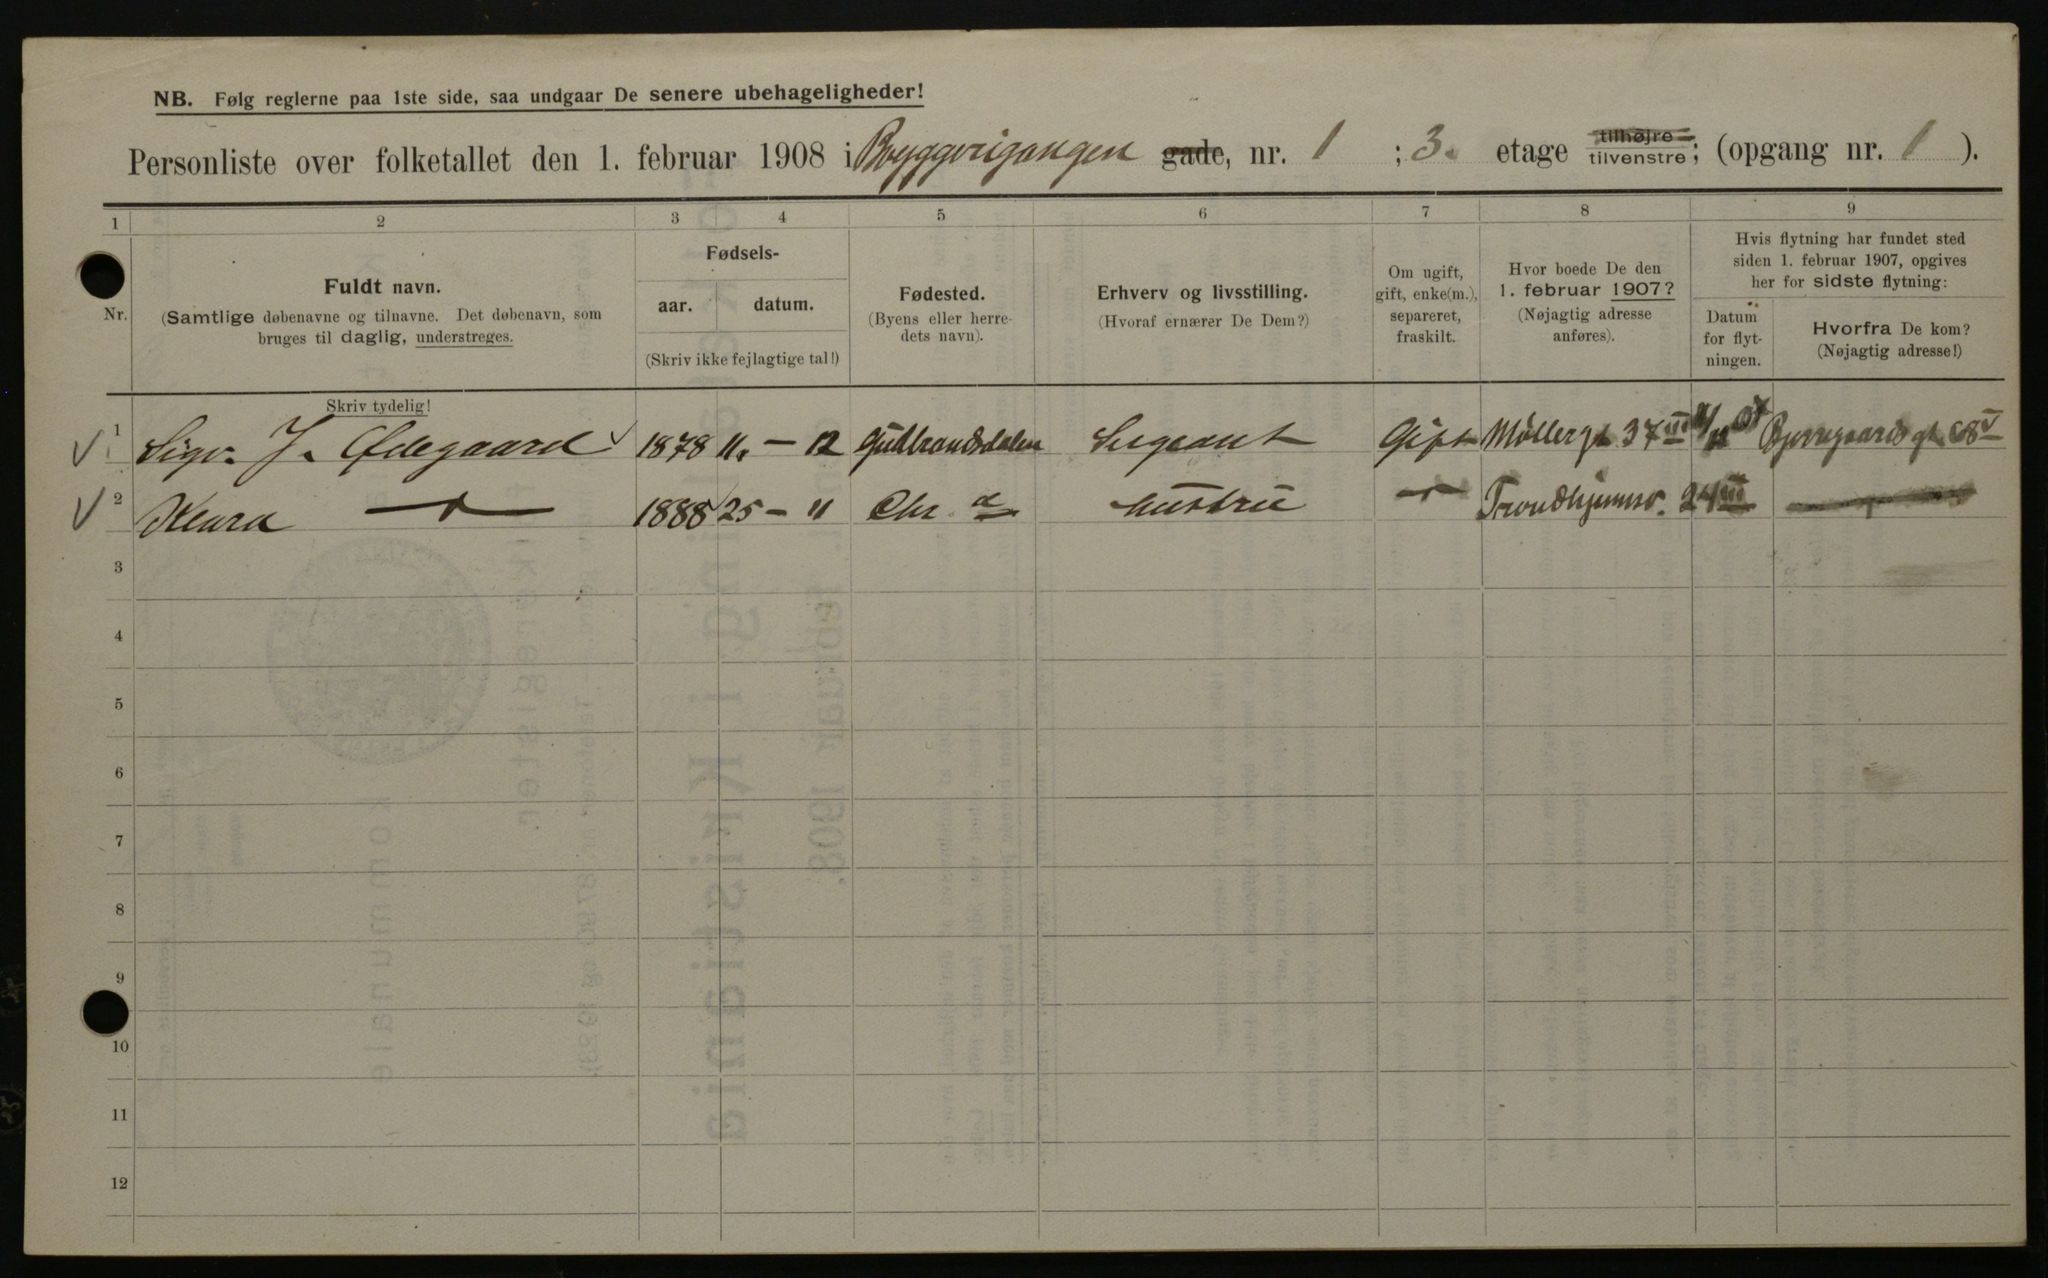 NB. Følg reglerne paa 1ste side, saa undgaar De senere ubehageligheder!
Personliste over folketallet den 1. februar 1908 i Bryggerigangen gade, nr. 1 ; 3. etage tilhøjre tilvenstre; (opgang nr. 1 ).
1 2 3 4 5 6 7 8 9
Nr.
Fuldt navn.
(Samtlige døbenavne og tilnavne. Det døbenavn, som
bruges til daglig, understreges.
Skriv tydelig!
Fødsels-
aar. datum.
(Skriv ikke fejlagtige tal!)
Fødested.
(Byens eller herre-
dets navn).
Erhverv og livsstilling.
(Hvoraf ernærer De Dem?)
Om ugift,
gift, enke(m.),
separeret,
fraskilt.
Hvor boede De den
1. februar 1907?
(Nøjagtig adresse
anføres).
Hvis flytning har fundet sted
siden 1. februar 1907, opgives
her for sidste flytning:
Datum
for flyt-
ningen.
Hvorfra De kom?
(Nøjagtig adresse!)
1 Sigv. J. Ødegaard 1878 11. – 12 Gudbrandsdalen Sergeant Gift Møllergt 37 III 07 Bjerregaards gt. 68 V
2 1888 25 – " Chr. a Hustru — " — Trondhjemsv. 24 III
3
4
5
6
7
8
9
10
11
12